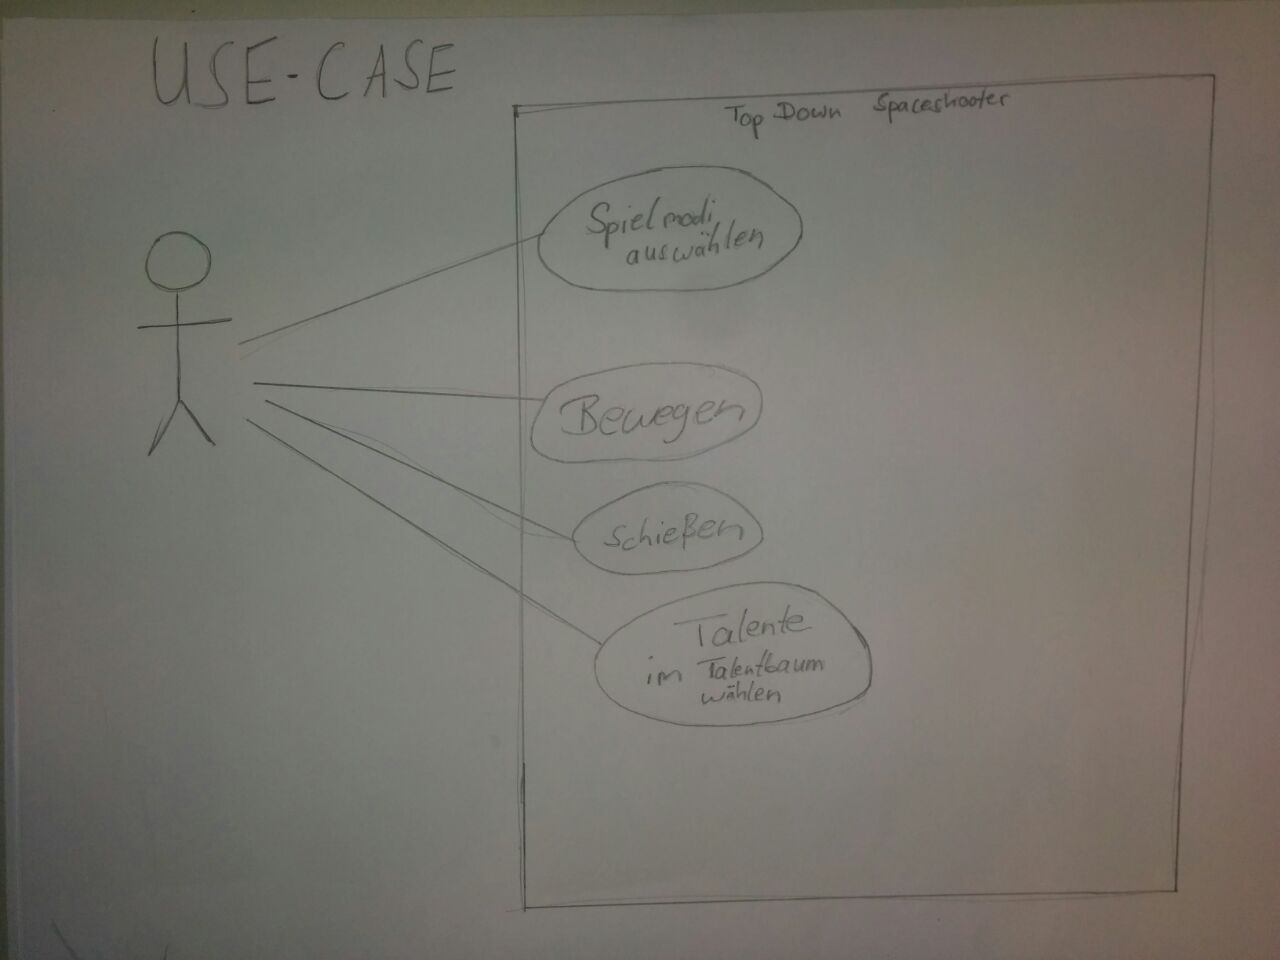 USE-CASE
Top Down Spaceshooter
Spielmodi
auswählen
Bewegen
Schießen
Talente
im Talentbaum
wählen